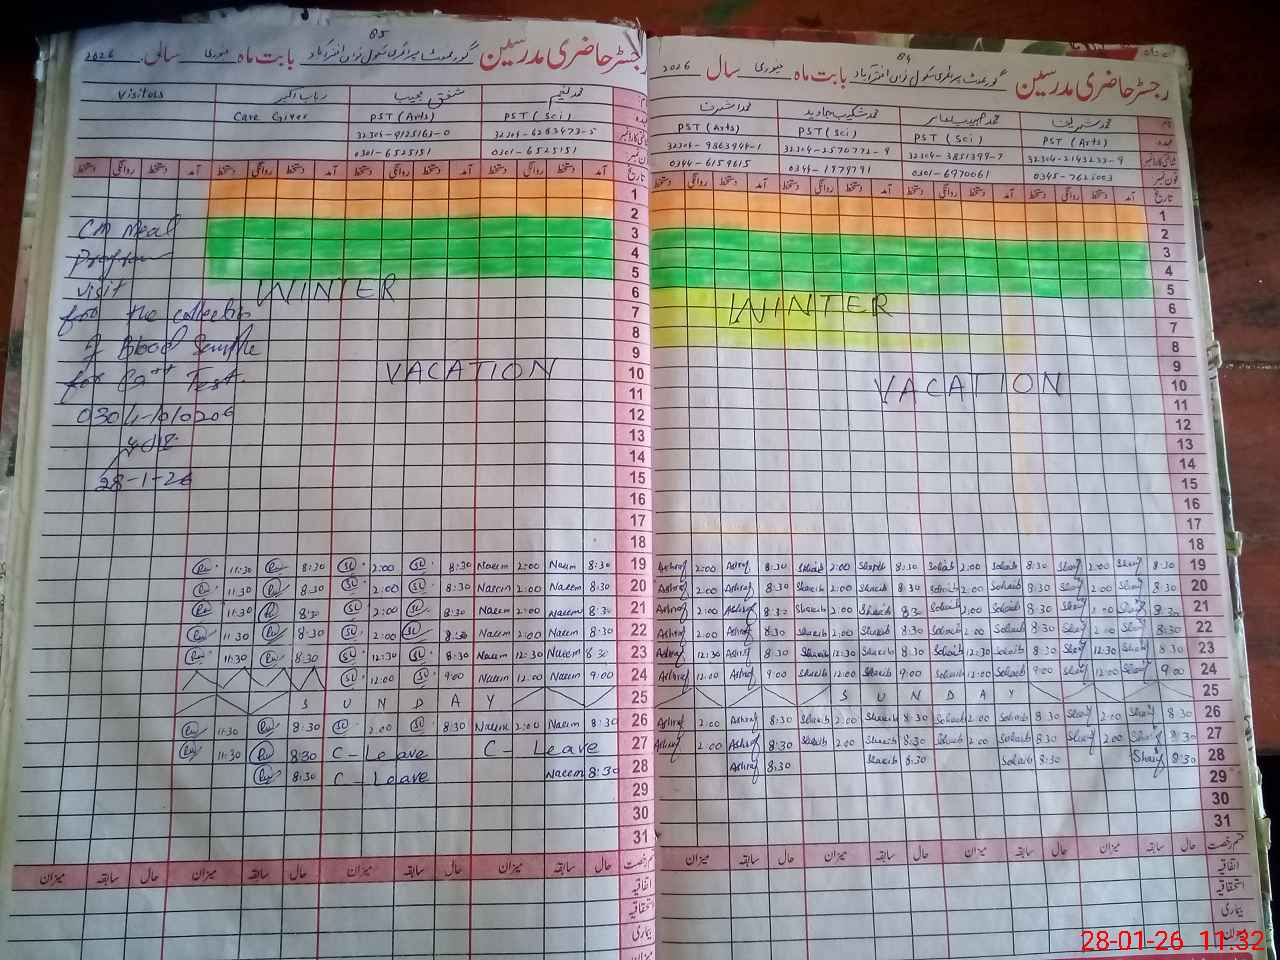 85
رجسٹر حاضری مدرسین گورنمنٹ پرائمری سکول بابت ماہ جنوری سال 2026
محمد نعیم شفیق مجیب رباب اکبر Visitors
PST (Sci) PST (Arts) Care Giver
32304-6283473-5 32304-9125163-0
0301-6525151 0301-6525151
تاریخ آمد دستخط روانگی دستخط آمد دستخط روانگی دستخط آمد دستخط روانگی دستخط آمد دستخط روانگی دستخط
1
2
3
4
5
6
7
8
9
10
11
12
13
14
15
16
17
18
WINTER
VACATION
CM Meal
Program
visit
for the collection
of Blood Sample
for Test.
28-1-26
11:30 8:30 2:00 8:30 Naeem 2:00 Naeem 8:30 19
11:30 8:30 2:00 8:30 Naeem 2:00 Naeem 8:30 20
11:30 8:30 2:00 8:30 Naeem 2:00 Naeem 8:30 21
11:30 8:30 2:00 8:30 Naeem 2:00 Naeem 8:30 22
11:30 8:30 12:30 8:30 Naeem 12:30 Naeem 8:30 23
12:00 9:00 Naeem 12:00 Naeem 9:00 24
S U N D A Y 25
11:30 8:30 2:00 8:30 Naeem 2:00 Naeem 8:30 26
11:30 8:30 C-Leave C-Leave 27
8:30 C-Leave Naeem 8:30 28
29
30
31
قسم رخصت حال سابقہ میزان حال سابقہ میزان حال سابقہ میزان حال سابقہ میزان
اتفاقیہ
استحقاقیہ
بیماری
میزان
84
رجسٹر حاضری مدرسین گورنمنٹ پرائمری سکول بابت ماہ جنوری سال 2026
نام محمد شریف محمد شکیب جاوید محمد اشرف
عہدہ PST (Arts) PST (Sci) PST (Sci) PST (Arts)
شناختی کارڈ نمبر 32304-2143233-9 32304-3851399-7 32304-2570772-9 32304-9863944-1
فون نمبر 0345-7625003 0301-6970061 0345-1979791 0344-6159615
تاریخ آمد دستخط روانگی دستخط آمد دستخط روانگی دستخط آمد دستخط روانگی دستخط آمد دستخط روانگی دستخط
1
2
3
4
5
6
7
8
9
10
11
12
13
14
15
16
17
18
WINTER
VACATION
Ashraf 2:00 Ashraf 8:30 Shakaib 2:00 Shakaib 8:30 Sohaib 2:00 Sohaib 8:30 Sharif 2:00 Sharif 8:30 19
Ashraf 2:00 Ashraf 8:30 Shakaib 2:00 Shakaib 8:30 Sohaib 2:00 Sohaib 8:30 Sharif 2:00 Sharif 8:30 20
Ashraf 2:00 Ashraf 8:30 Shakaib 2:00 Shakaib 8:30 Sohaib 2:00 Sohaib 8:30 Sharif 2:00 Sharif 8:30 21
Ashraf 2:00 Ashraf 8:30 Shakaib 2:00 Shakaib 8:30 Sohaib 2:00 Sohaib 8:30 Sharif 2:00 Sharif 8:30 22
Ashraf 12:30 Ashraf 8:30 Shakaib 12:30 Shakaib 8:30 Sohaib 12:30 Sohaib 8:30 Sharif 12:30 Sharif 8:30 23
Ashraf 12:00 Ashraf 9:00 Shakaib 12:00 Shakaib 9:00 Sohaib 12:00 Sohaib 9:00 Sharif 12:00 Sharif 9:00 24
S U N D A Y 25
Ashraf 2:00 Ashraf 8:30 Shakaib 2:00 Shakaib 8:30 Sohaib 2:00 Sohaib 8:30 Sharif 2:00 Sharif 8:30 26
Ashraf 2:00 Ashraf 8:30 Shakaib 2:00 Shakaib 8:30 Sohaib 2:00 Sohaib 8:30 Sharif 2:00 Sharif 8:30 27
Ashraf 8:30 Shakaib 8:30 Sohaib 8:30 Sharif 8:30 28
29
30
31
قسم رخصت حال سابقہ میزان حال سابقہ میزان حال سابقہ میزان حال سابقہ میزان
اتفاقیہ
استحقاقیہ
بیماری
میزان
28-01-26 11:32